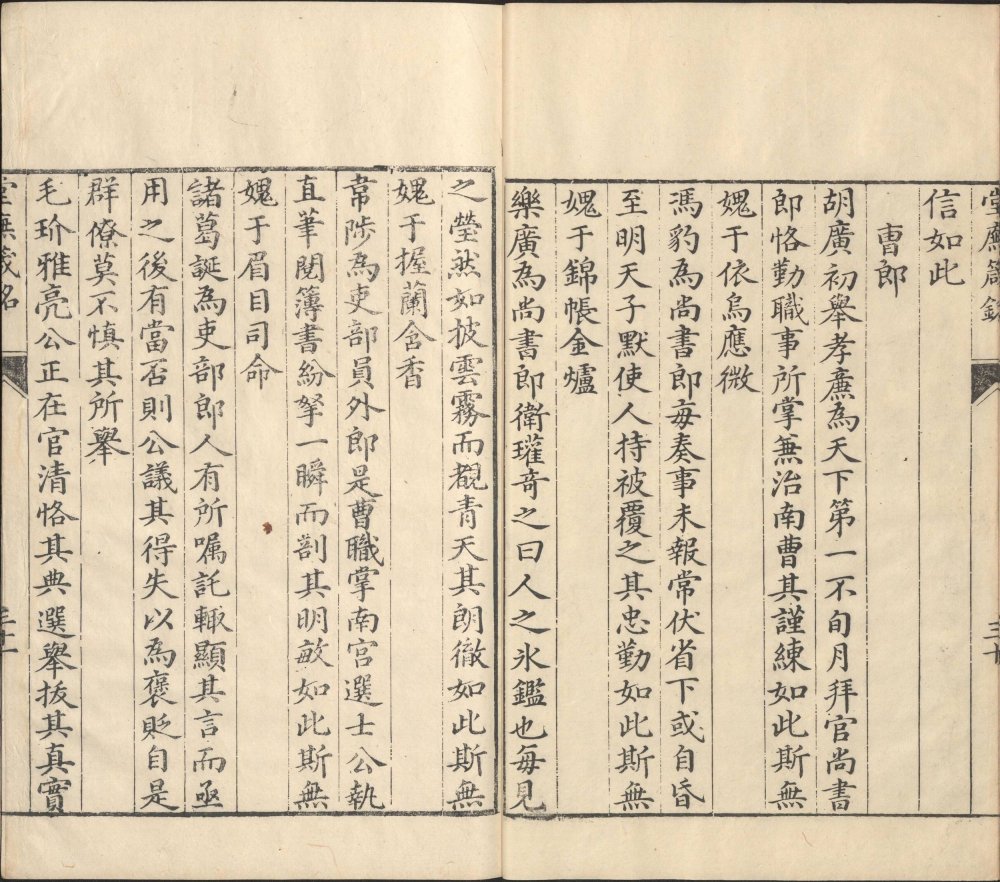 三十
信如此
曹郎
胡廣初舉孝廉為天下第一不旬月拜官尚書
郎恪勤職事所掌無治南曹其謹練如此斯無
媿于依烏應微
馮豹為尚書郎每奏事未報常伏省下或自昏
至明天子默使人持被覆之其忠勤如此斯無
媿于錦帳金爐
樂廣為尚書郎衛瓘奇之曰人之氷鑑也每見
之瑩然如披雲霧而覩青天其朗徹如此斯無
媿于握蘭含香
常陟為吏部員外郎是曹職掌南宫選士公執
直筆閱簿書紛拏一瞬而剖其明敏如此斯無
媿于眉目司命
諸葛誕為吏部郎人有所嘱託輙顯其言而亟
用之後有當否則公議其得失以為褒貶自是
群僚莫不慎其所舉
毛玠雅亮公正在官清恪其典選舉拔其真實
三十一